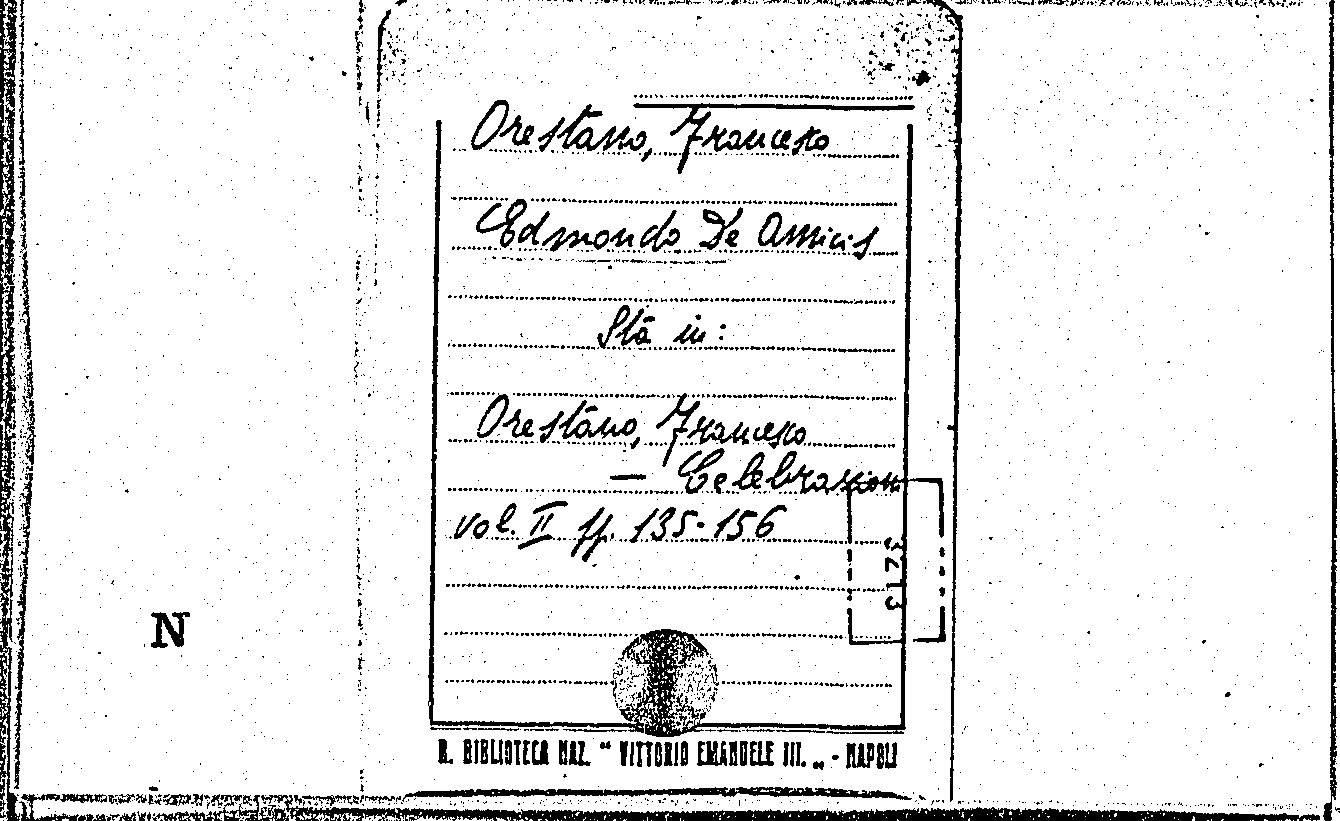 Orestano, Francesco
Edmondo De Amicis
Stà in:
Orestano, Francesco
— Celebrazioni
vol. II pp. 135-156
3213
N
R. BIBLIOTECA NAZ. “ VITTORIO EMANUELE III. „ - NAPOLI